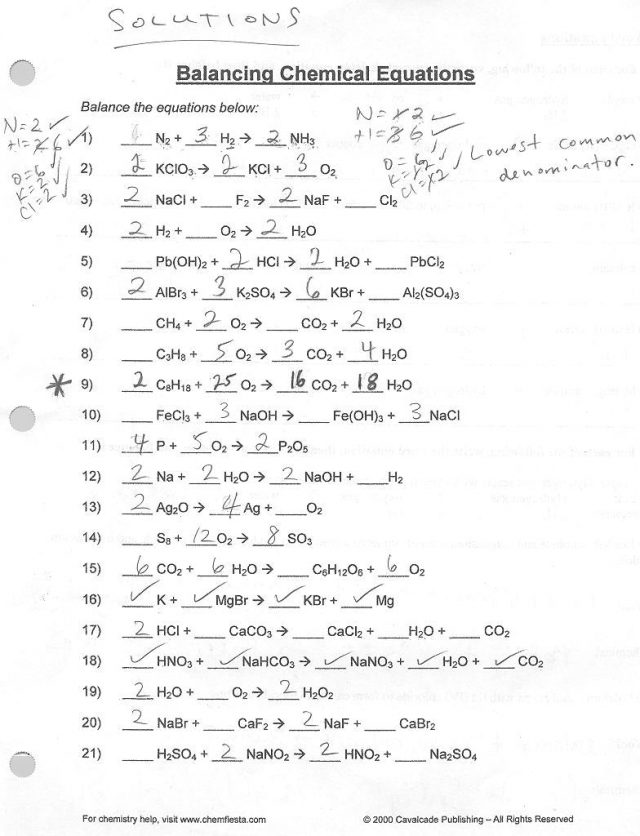 SOLUTIONS
Balancing Chemical Equations
Balance the equations below:
N=2 ✓
H=2 6 ✓
O=6 ✓
K=2 ✓
Cl=2 ✓
N=1 2 ✓
H=3 6 ✓
O=6 ✓
K=1 2 ✓
Cl=1 2 ✓
Lowest common
denominator.
1) 1 N₂ + 3 H₂ → 2 NH₃
2) 2 KClO₃ → 2 KCl + 3 O₂
3) 2 NaCl + ___ F₂ → 2 NaF + ___ Cl₂
4) 2 H₂ + ___ O₂ → 2 H₂O
5) ___ Pb(OH)₂ + 2 HCl → 2 H₂O + ___ PbCl₂
6) 2 AlBr₃ + 3 K₂SO₄ → 6 KBr + ___ Al₂(SO₄)₃
7) ___ CH₄ + 2 O₂ → ___ CO₂ + 2 H₂O
8) ___ C₃H₈ + 5 O₂ → 3 CO₂ + 4 H₂O
* 9) 2 C₈H₁₈ + 25 O₂ → 16 CO₂ + 18 H₂O
10) ___ FeCl₃ + 3 NaOH → ___ Fe(OH)₃ + 3 NaCl
11) 4 P + 5 O₂ → 2 P₂O₅
12) 2 Na + 2 H₂O → 2 NaOH + ___ H₂
13) 2 Ag₂O → 4 Ag + ___ O₂
14) ___ S₈ + 12 O₂ → 8 SO₃
15) 6 CO₂ + 6 H₂O → ___ C₆H₁₂O₆ + 6 O₂
16) ✓ K + ✓ MgBr → ✓ KBr + ✓ Mg
17) 2 HCl + ___ CaCO₃ → ___ CaCl₂ + ___ H₂O + ___ CO₂
18) ✓ HNO₃ + ✓ NaHCO₃ → ✓ NaNO₃ + ✓ H₂O + ✓ CO₂
19) 2 H₂O + ___ O₂ → 2 H₂O₂
20) 2 NaBr + ___ CaF₂ → 2 NaF + ___ CaBr₂
21) ___ H₂SO₄ + 2 NaNO₂ → 2 HNO₂ + ___ Na₂SO₄
For chemistry help, visit www.chemfiesta.com
© 2000 Cavalcade Publishing – All Rights Reserved